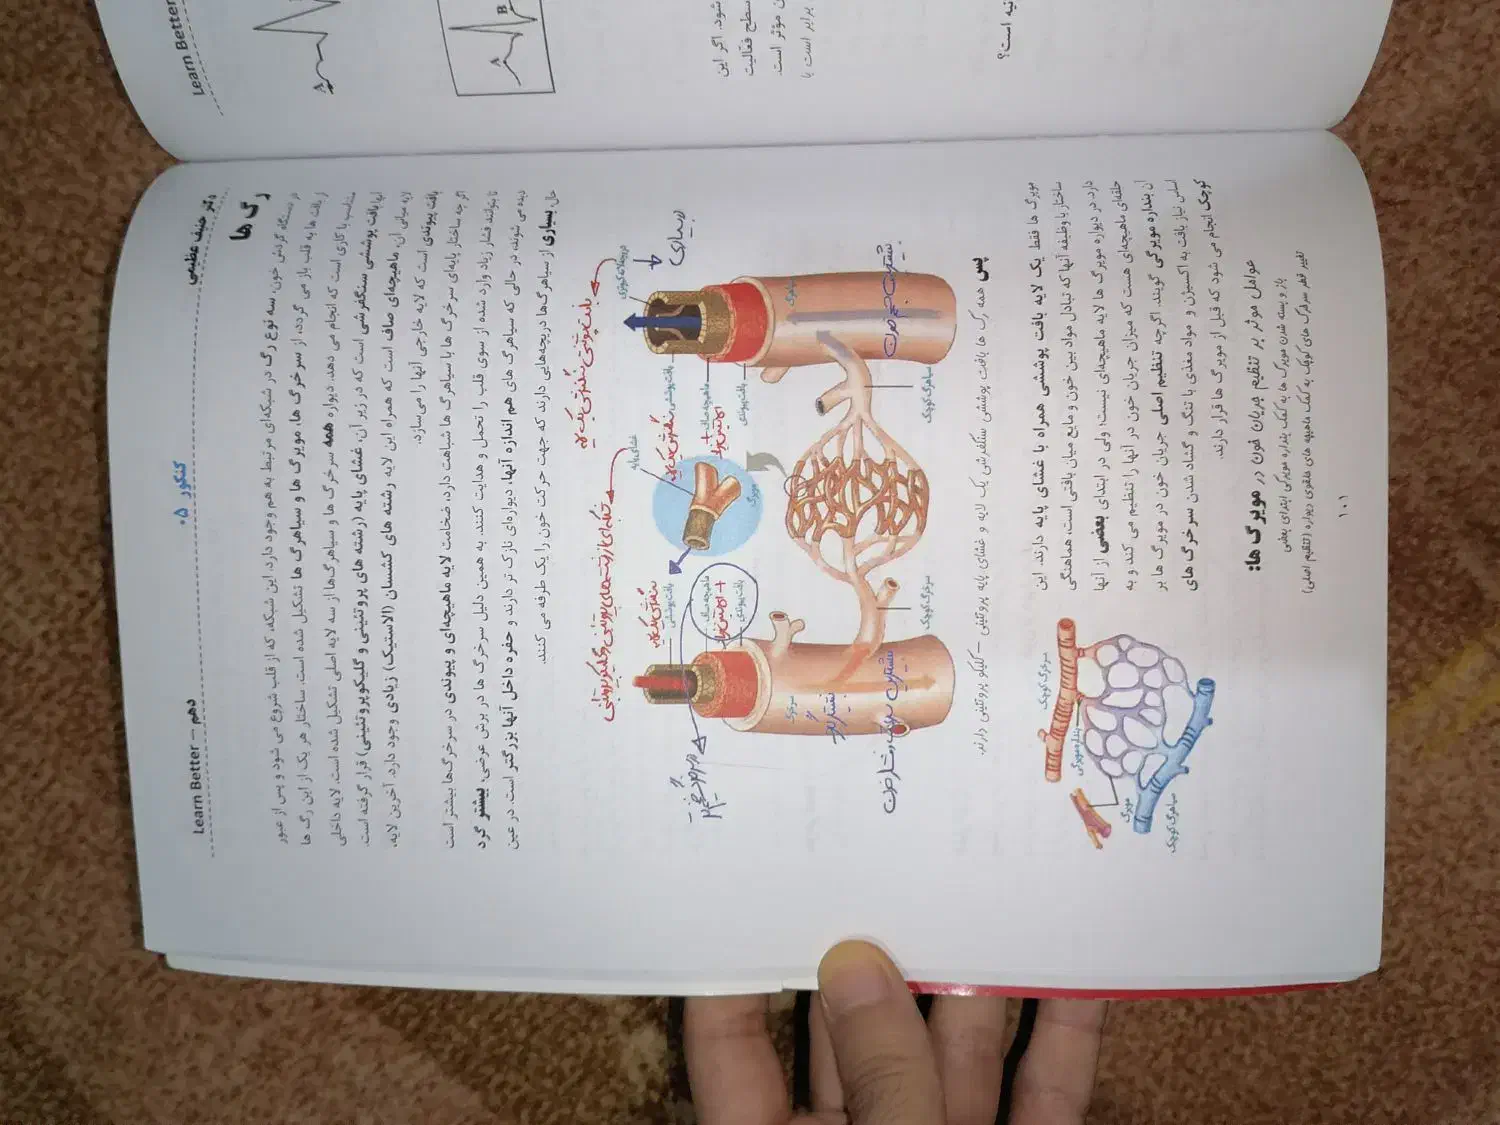 Learn Better
A
A
B
شود. اگر این
سطح فعالیت
ن موثر است.
برابر است با
نیه است؟
Learn Better – دهم
کنکور ۰۵
دکتر حنیف عظیمی
رگ ها
در دستگاه گردش خون، سه نوع رگ در شبکه‌ای مرتبط به هم وجود دارد. این شبکه، که از قلب شروع می شود و پس از عبور
از بافت ها به قلب باز می گردد، از سرخرگ ها، مویرگ ها و سیاهرگ ها تشکیل شده است. ساختار هر یک از این رگ ها
متناسب با کاری است که انجام می دهد. دیواره همه سرخرگ ها و سیاهرگ‌ها از سه لایه اصلی تشکیل شده است. لایه داخلی
آنها بافت پوششی سنگفرشی است که در زیر آن، غشای پایه (رشته های پروتئینی و گلیکوپروتئینی) قرار گرفته است.
لایه میانی آن، ماهیچه‌ای صاف است که همراه این لایه رشته های کشسان (الاستیک) زیادی وجود دارد. آخرین لایه،
بافت پیوندی است که لایه خارجی آنها را می‌سازد.
اگر چه ساختار پایه‌ای سرخرگ ها با سیاهرگ ها شباهت دارد، ضخامت لایه ماهیچه‌ای و پیوندی در سرخرگ‌ها بیشتر است
تا بتوانند فشار زیاد وارد شده از سوی قلب را تحمل و هدایت کنند. به همین دلیل سرخرگ ها در برش عرضی، بیشتر گرد
دیده می شوند، در حالی که سیاهرگ های هم اندازه آنها، دیواره‌ای نازک تر دارند و حفره داخل آنها بزرگتر است. در عین
حال، بسیاری از سیاهرگ‌ها دریچه‌هایی دارند که جهت حرکت خون را یک طرفه می کنند.
بافت پوششی سنگفرشی یک لایه
شبکه‌ای از رشته‌های پروتئینی و گلیکوپروتئینی
بسیاری
غشای پایه
سنگفرشی یک لایه
بافت پوششی
ماهیچه صاف
+ الاستیک
بافت پیوندی
سنگفرشی یک لایه
بافت پوششی
ماهیچه صاف
+ الاستیک
بافت پیوندی
مویرگ
سرخرگ
سیاهرگ
بیشترین حجم خون
بیشترین سرعت و فشار خون
سرخرگ کوچک
سیاهرگ کوچک
پس همه رگ ها بافت پوششی سنگفرشی یک لایه و غشای پایه پروتئینی – گلیکو پروتئینی دارند.
مویرگ ها فقط یک لایه بافت پوششی همراه با غشای پایه دارند. این
ساختار با وظیفه آنها که تبادل مواد بین خون و مایع میان بافتی است، هماهنگی
دارد. در دیواره مویرگ ها لایه ماهیچه‌ای نیست؛ ولی در ابتدای بعضی از آنها
حلقه‌ای ماهیچه‌ای هست که میزان جریان خون در آنها را تنظیم می کند و به
آن بنداره مویرگی گویند. اگرچه تنظیم اصلی جریان خون در مویرگ ها بر
اساس نیاز بافت به اکسیژن و مواد مغذی با تنگ و گشاد شدن سرخرگ های
کوچک انجام می شود که قبل از مویرگ ها قرار دارند.
سرخرگ کوچک
بنداره مویرگی
مویرگ
سیاهرگ کوچک
عوامل موثر بر تنظیم جریان خون در مویرگ ها:
باز و بسته شدن مویرگ ها به کمک بنداره مویرگی ابتدای بعضی
تغییر قطر سرخرگ های کوچک به کمک ماهیچه های حلقوی دیواره (تنظیم اصلی)
۱۰۱